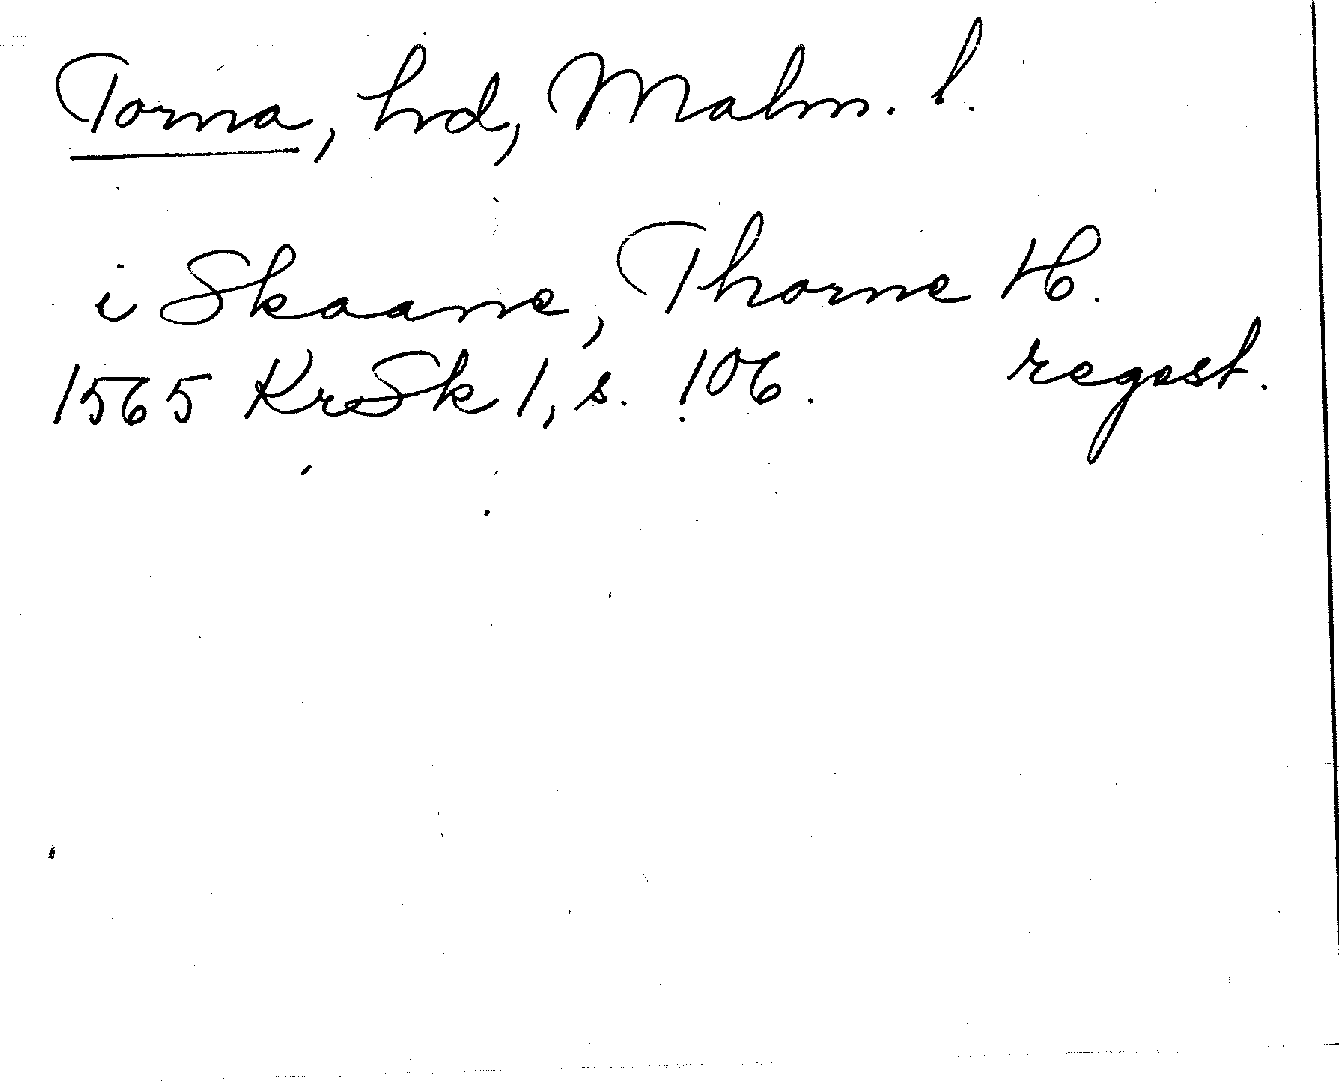 Torna, hrd, Malm. l.
i Skaane, Thorne H.
1565 KrSk 1, s. 106. regest.